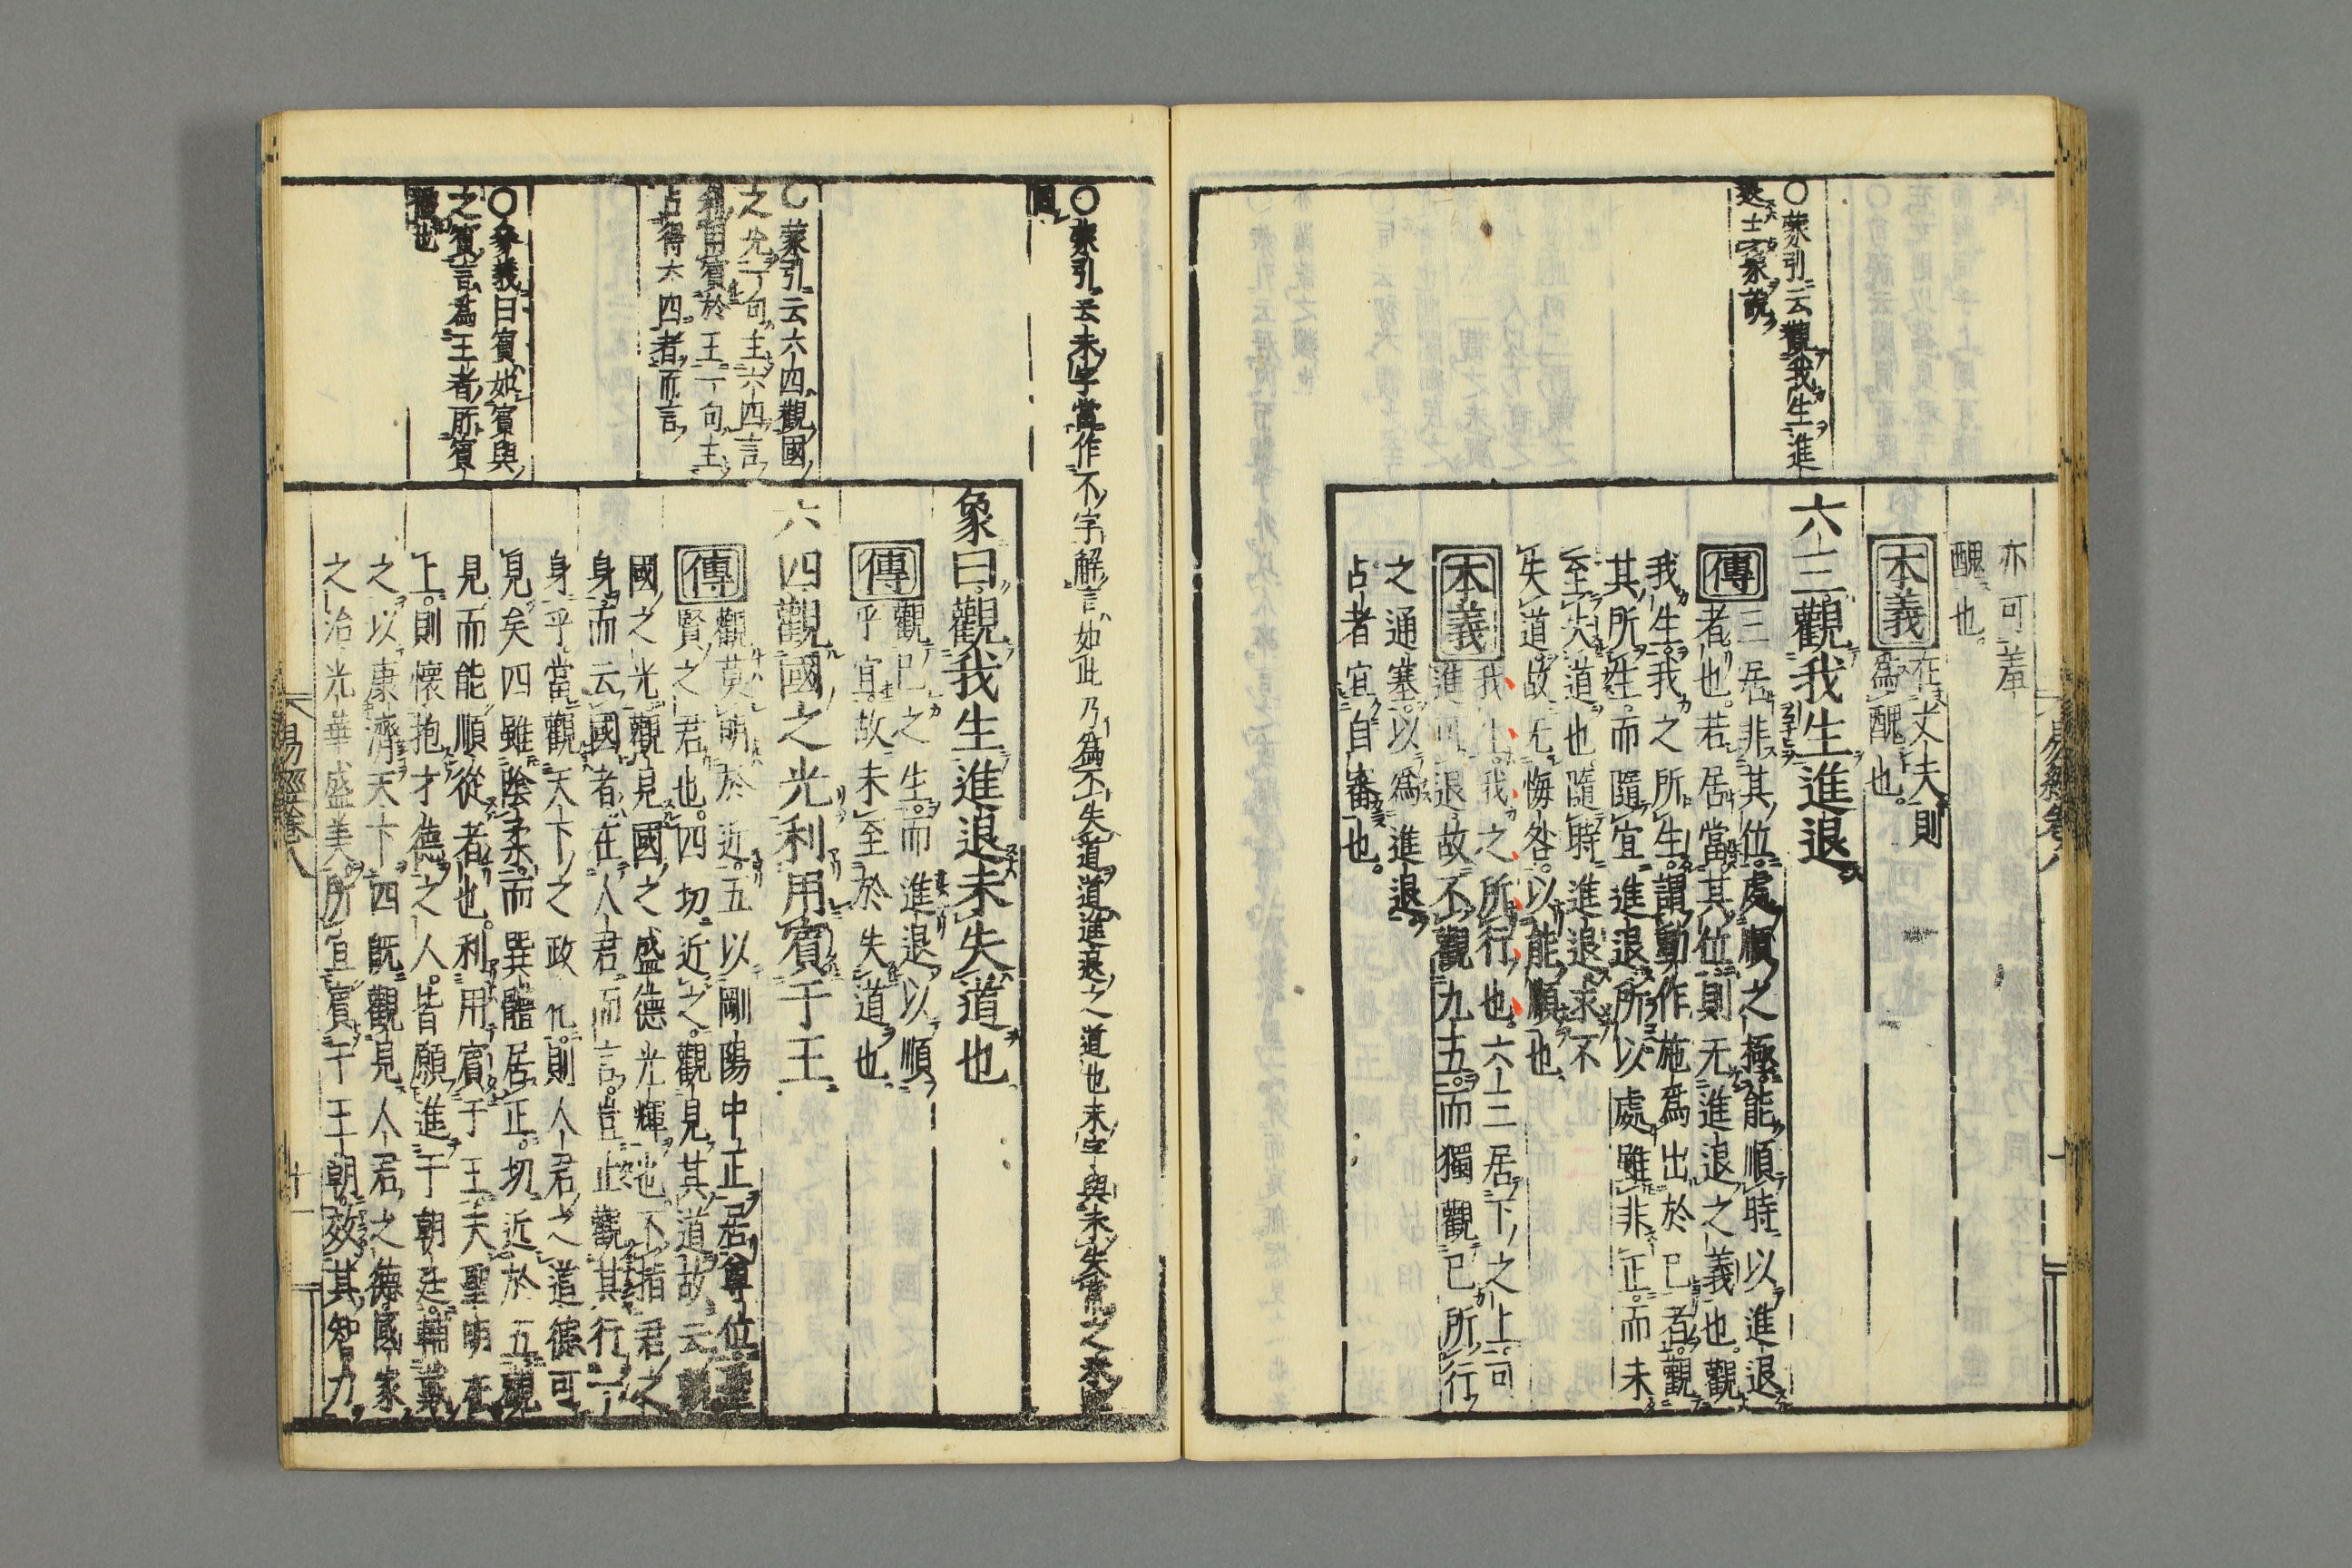 亦可羞
醜也。
本義
在丈夫則
爲醜也。
六三觀我生進退
傳
三居非其位。處順之極。能順時以進退
者也。若居當其位。則无進退之義也。觀
我生。我之所生。謂動作施爲出於己者。觀
其所生。而隨宜進退。所以處雖非正。而未
至失道也。隨時進退。求不
失道。故无悔咎。以能順也
本義
我生。我之所行也。六三居下之上。可
進可退。故不觀九五。而獨觀己所行
之通塞。以爲進退。
占者宜自審也。
○蒙引云觀我生進
退士家說
易經卷八
○蒙引云未字當作不字解言如此乃爲不失道道進退之道也未字與未失常之未
同
象曰。觀我生進退。未失道也
傳
觀己之生。而進退以順
乎宜。故未至於失道也
六四觀國之光利用賓于王
傳
觀莫明於近。五以剛陽中正。居尊位。聖
賢之君也。四切近之。觀見其道。故云觀
國之光。觀見國之盛德光輝也。不指君之
身。而云國者。在人君而言。豈止觀其行一
身乎。當觀天下之政化。則人君之道德可
見矣。四雖陰柔。而巽體居正。切近於五。觀
見而能順從者也。利用賓于王。夫聖明在
上。則懷抱才德之人。皆願進于朝廷。輔戴
之以康濟天下。四既觀見人君之德。國家
之治。光華盛美。所宜賓于王朝。效其智力
○蒙引云六四觀國
之光一句主六四言
利用賓於王一句主
占得六四者而言
○參義曰賓如賓與
之賓言爲王者所賓
禮也
易經卷八
十一